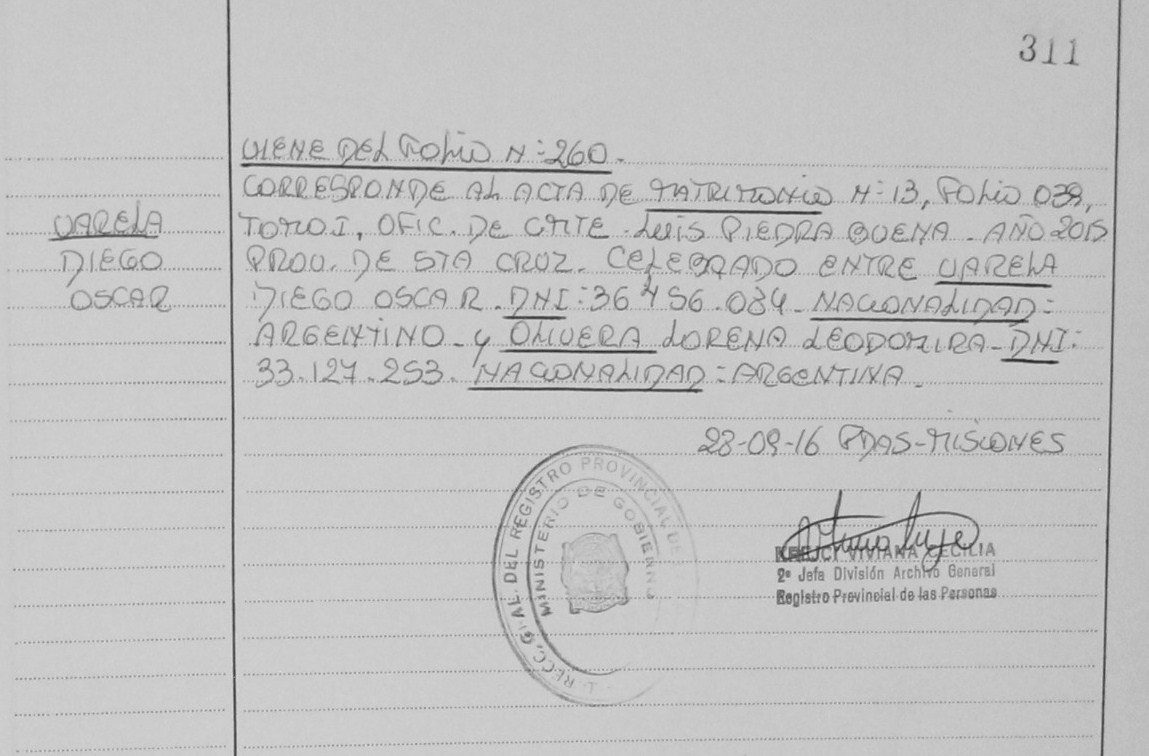 311
VIENE DEL FOLIO N:260.
CORRESPONDE AL ACTA DE MATRIMONIO N:13, FOLIO 039,
VARELA
DIEGO
OSCAR
TOMO I, OFIC. DE CMTE. LUIS PIEDRA BUENA - AÑO 2015
PROV. DE STA CRUZ. CELEBRADO ENTRE VARELA
DIEGO OSCAR. DNI: 36.456.084. NACIONALIDAD:
ARGENTINO - Y OLIVERA LORENA LEODOMIRA - DNI:
33.127.253. NACIONALIDAD: ARGENTINA.
28-09-16 PDAS-MISIONES
REGISTRO PROVINCIAL DE
MINISTERIO DE GOBIERNO
VIVIANA CECILIA
2º Jefa División Archivo General
Registro Provincial de las Personas